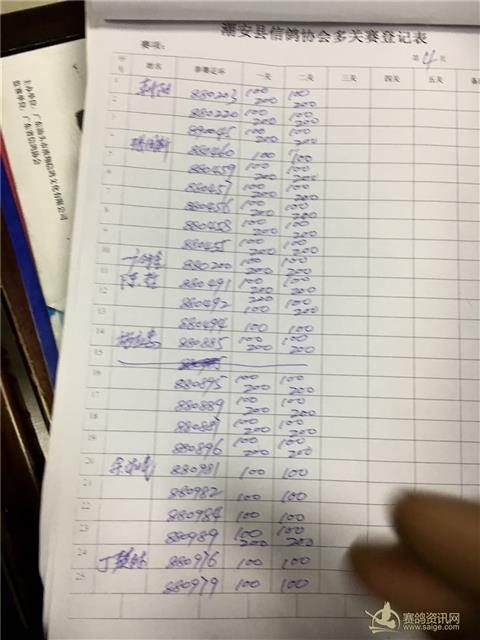 潮安县信鸽协会多关赛登记表
赛项: 第4页
序号 姓名 参赛足环 一关 二关 三关 四关 五关 备
1 880203 100 200 100 200
2 880220 100 200 100 200
3 880045 100 200 100 200
4 880460 100 100
5 880459 100 200 100 200
6 880457 100 200 100 200
7 880456 100 200 100 200
8 880458 100 200 100 200
9 880455 100 200 100 200
10 880200 100 200 100 200
11 880491 100 200 100 200
12 880492 100 200 100 200
13 880494 100 100
14 880885 100 200 100 200
15
16 880895 100 200 100 200
17 880889 100 200 100 200
18 100 200 100 200
19 880896 100 200 100 200
20 880981 100 100
21 880982 100 100
22 880984 100 100
23 880989 100 200 100 200
24 丁 880976 100 100
25 880979 100 100
主办单位:广东汕头市 翔信鸽文化有限公司
监赛单位:广东省信鸽协会
赛鸽资讯网
www.saige.com